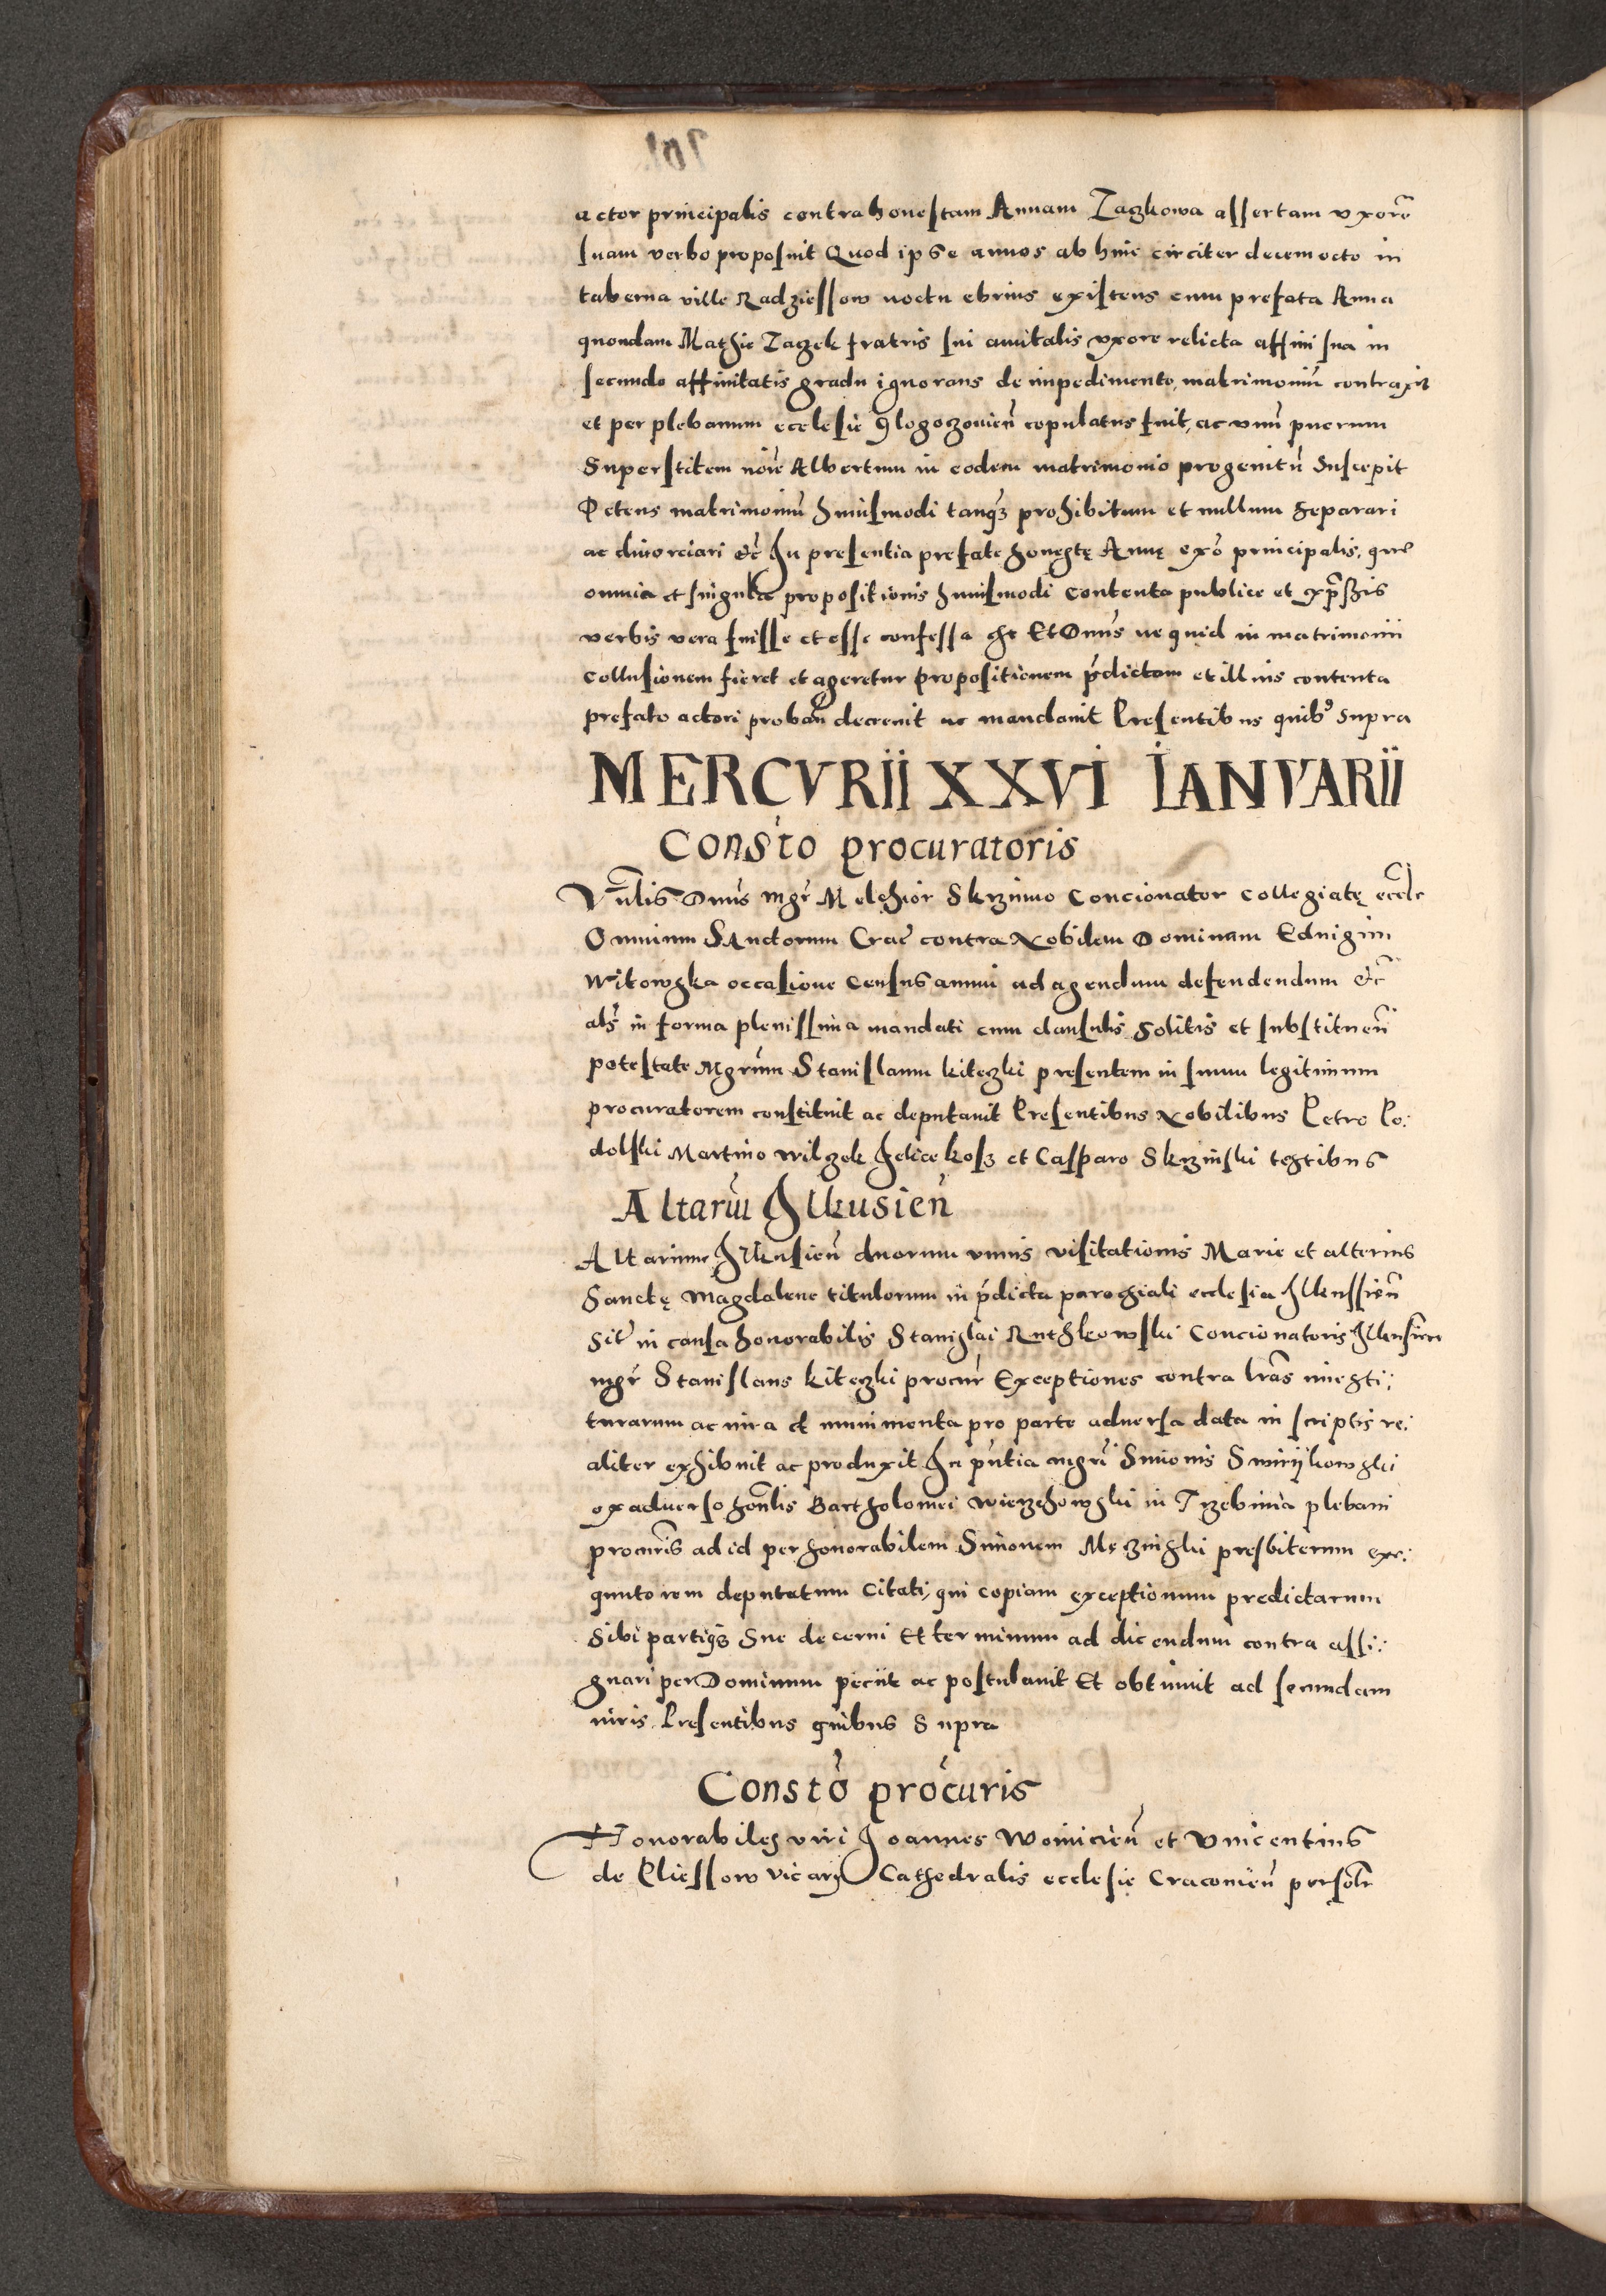 actor principalis contra honestam Annam Zagkowa assertam vxorē
suam verbo proposuit Quod ipse annos ab hinc circiter decem octo in
taberna ville Radziessow noctu ebrius existens cum prefata Anna
quondam Mathie Zagek fratris sui amitalis vxore relicta affini sua in
secundo affinitatis gradu ignorans de impedimento, matrimoniū contraxit
et per plebanum ecclesie Glogoczouień copulatus fuit, ac vnū puerum
Superstitem noīe Albertum in eodem matrimonio progenitū Suscepit
Petens matrimoniū huiusmodi tanq̄ȝ prohibitum et nullum separari
ac diuorciari etč In presentia prefate honestę Annę ex° principalis, que
omnia et singula propositionis huiusmodi contenta publice et exp̄ssis
verbis vera fuisse et esse confessa est Et Dnūs ne quid in matrimonii
collusionem fieret et ageretur propositionem p̄dictam et illius contenta
prefato actori probań decreuit ac mandauit Presentibus quib⁹ supra
MERCVRII XXVI IANVARII
Consto procuratoris
Vn̄lis Dnūs mgr̄ Melchior Skrzinno Concionator Collegiatę eccle
Omnium Sanctorum Crac̄ contra Nobilem Dominam Eduigim
Witowska occasione Census annui ad agendum defendendum etč
als̄ in forma plenissima mandati cum clausulis solitis et substitueń
potestate Mgrūm Stanislaum kiteczki presentem in suum legitimum
procuratorem constituit ac deputauit Presentibus Nobilibus Petro Po:
dolski Martino wilgek Felice kosz et Casparo Skrzinski testibus
Altarīū Ilkusień
Altarium Ilkusień duorum vnius visitationis Marie et alterius
Sanctę Magdalene titulorum in p̄dicta parochiali ecclesia Ilkussień
Sit̄ in causa honorabilis Stanislai Ruthkowski Concionatoris Ilkusień
mgr̄ Stanislaus kiteczki procur̄ Exceptiones contra lr̄as inuesti:
turarum ac iura et munimenta pro parte aduersa data in scriptis re:
aliter exhibuit ac produxit In pn̄tia mgrī Simonis Swirijkowski
ex aduerso hon̄lis Bartholomei wierzchowski in Trzebinia plebani
procur̄is ad id per honorabilem Simonem Męczinski presbiterum exe:
quutorem deputatum Citati, qui copiam exceptionum predictarum
Sibi partiqȝ Sue decerni Et terminum ad dicendum contra assi:
gnari per Dominum peciit ac postulauit Et obtinuit ad secundam
iuris. Presentibus quibus Supra
Constō procuris
Honorabiles viri Joannes Woinicień et Vincentius
de Pliessow vicarij Cathedralis ecclesię Cracouień persolr̄